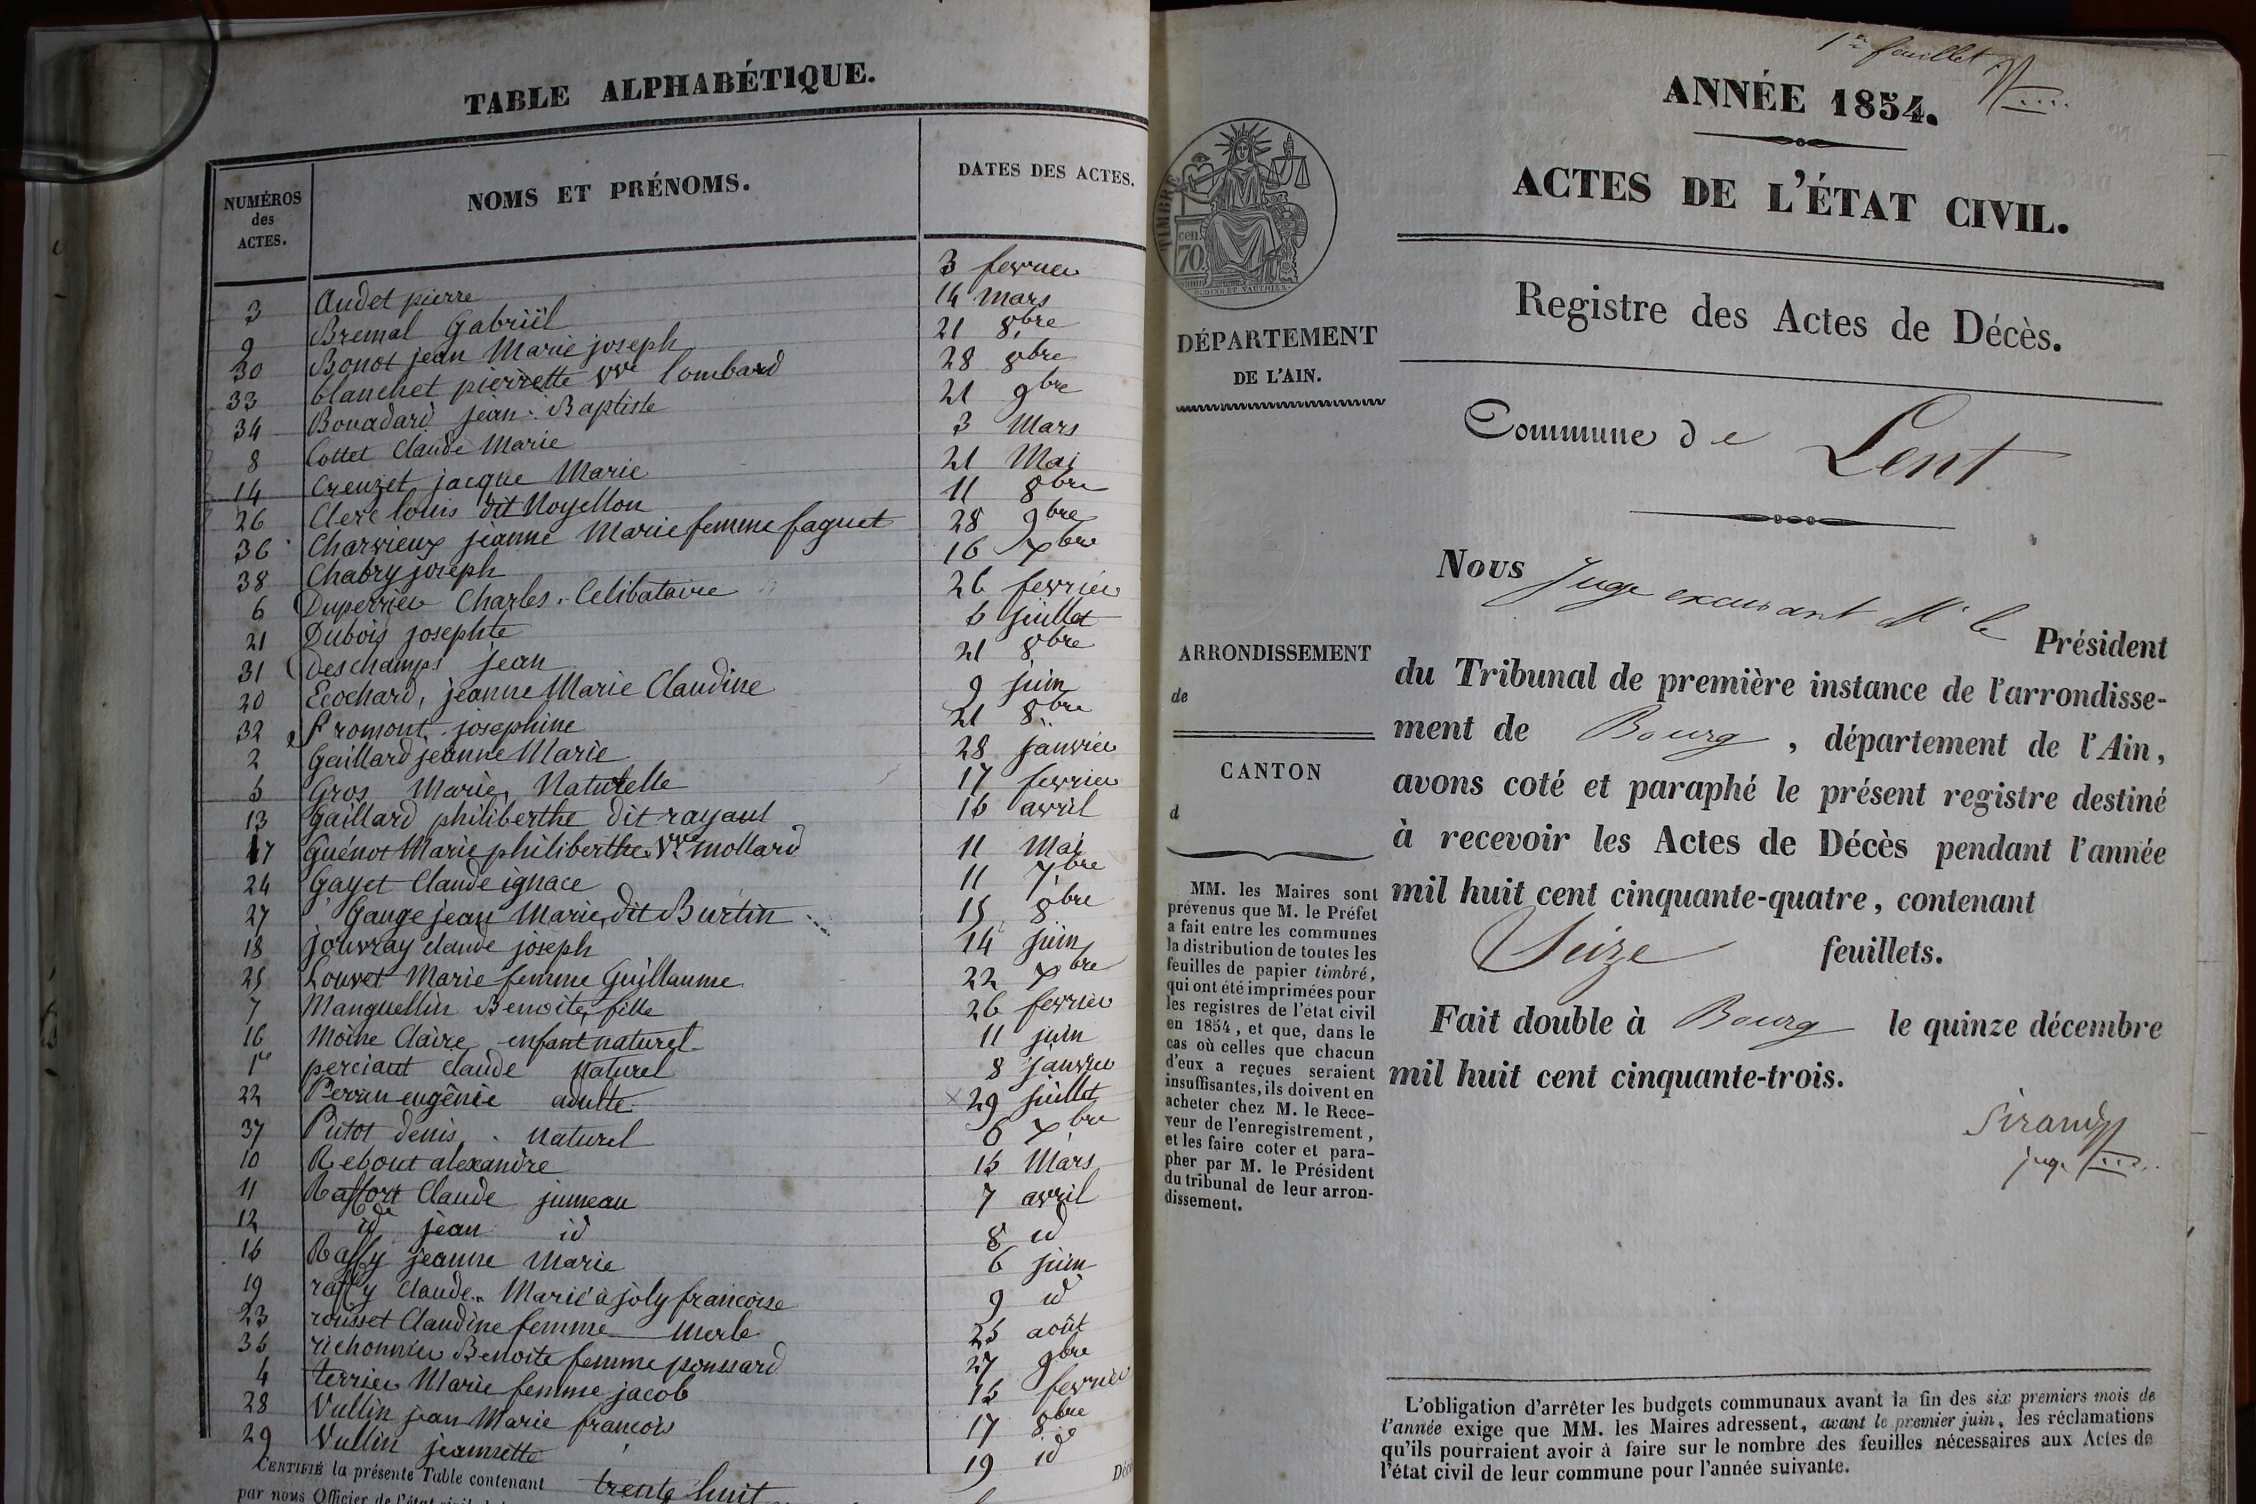 TABLE ALPHABÉTIQUE.
NUMÉROS
des
ACTES.
NOMS ET PRÉNOMS.
DATES DES ACTES.
3 Audet pierre 3 fevrier
9 Bremal Gabriël 14 Mars
30 Bonot jean Marie joseph 21 8bre
33 blanchet pierrette vve lombard 28 8bre
34 Bouadard jean Baptiste 21 9bre
8 Cottet Claude Marie 3 Mars
14 Creuzet jacque Marie 21 Mai
26 Clerc louis dit Noyellon 11 8bre
36 Charvieux jeanne Marie femme faguet 28 9bre
38 Chabry joseph 16 xbre
6 Duperrier Charles. Celibataire 26 fevrier
21 Dubois josephte 6 juillet
31 Deschamps jean 21 8bre
20 Ecochard, jeanne Marie Claudine 9 juin
32 Fromont josephine 21 8bre
2 Gaillard jeanne Marie 28 janvier
5 Gros Marie, Naturelle 17 fevrier
13 Gaillard philiberthe dit rayaud 16 avril
17 Guenot Marie philiberthe Vve mollard 11 Mai
24 Gayet Claude ignace 11 7bre
27 Gauge jean Marie, dit Burtin 15 8bre
18 jouvray claude joseph 14 juin
25 Louvet Marie femme Guillaume 22 7bre
7 Manguellin Benoite, fille 26 fevrier
16 Moine Claire enfant naturel 11 juin
1er perciaut claude naturel 8 janvier
22 Perrin eugénie adulte 29 juillet
37 Putot denis, naturel 6 xbre
10 Rebout alexandre 15 Mars
11 Raffort Claude jumeau 7 avril
12 id jean id 8 id
16 Raffy jeanne Marie 6 juin
19 raffy Claude Marié à joly francoise 9 id
23 rousset Claudine femme Merle 25 août
35 richonnier Benoite femme poussard 27 9bre
4 terrier Marie femme jacob 15 fevrier
28 Vullin jean Marie francois 17 8bre
29 Vullin jeannette 19 id
CERTIFIÉ la présente Table contenant trente huit
par nous Officier de l'état civil
1er feuillet
ANNÉE 1854.
ACTES DE L'ÉTAT CIVIL.
Registre des Actes de Décès.
TIMBRE
cen.
70
DÉPARTEMENT
DE L'AIN.
Commune de Lent
Nous Juge excusant Mr le Président
du Tribunal de première instance de l'arrondisse-
ment de Bourg, département de l'Ain,
avons coté et paraphé le présent registre destiné
à recevoir les Actes de Décès pendant l'année
mil huit cent cinquante-quatre, contenant
Seize feuillets.
Fait double à Bourg le quinze décembre
mil huit cent cinquante-trois.
Sirand
juge
ARRONDISSEMENT
de
CANTON
d
MM. les Maires sont
prévenus que M. le Préfet
a fait entre les communes
la distribution de toutes les
feuilles de papier timbré,
qui ont été imprimées pour
les registres de l'état civil
en 1854, et que, dans le
cas où celles que chacun
d'eux a reçues seraient
insuffisantes, ils doivent en
acheter chez M. le Rece-
veur de l'enregistrement,
et les faire coter et para-
pher par M. le Président
du tribunal de leur arron-
dissement.
L'obligation d'arrêter les budgets communaux avant la fin des six premiers mois de
l'année exige que MM. les Maires adressent, avant le premier juin, les réclamations
qu'ils pourraient avoir à faire sur le nombre des feuilles nécessaires aux Actes de
l'état civil de leur commune pour l'année suivante.